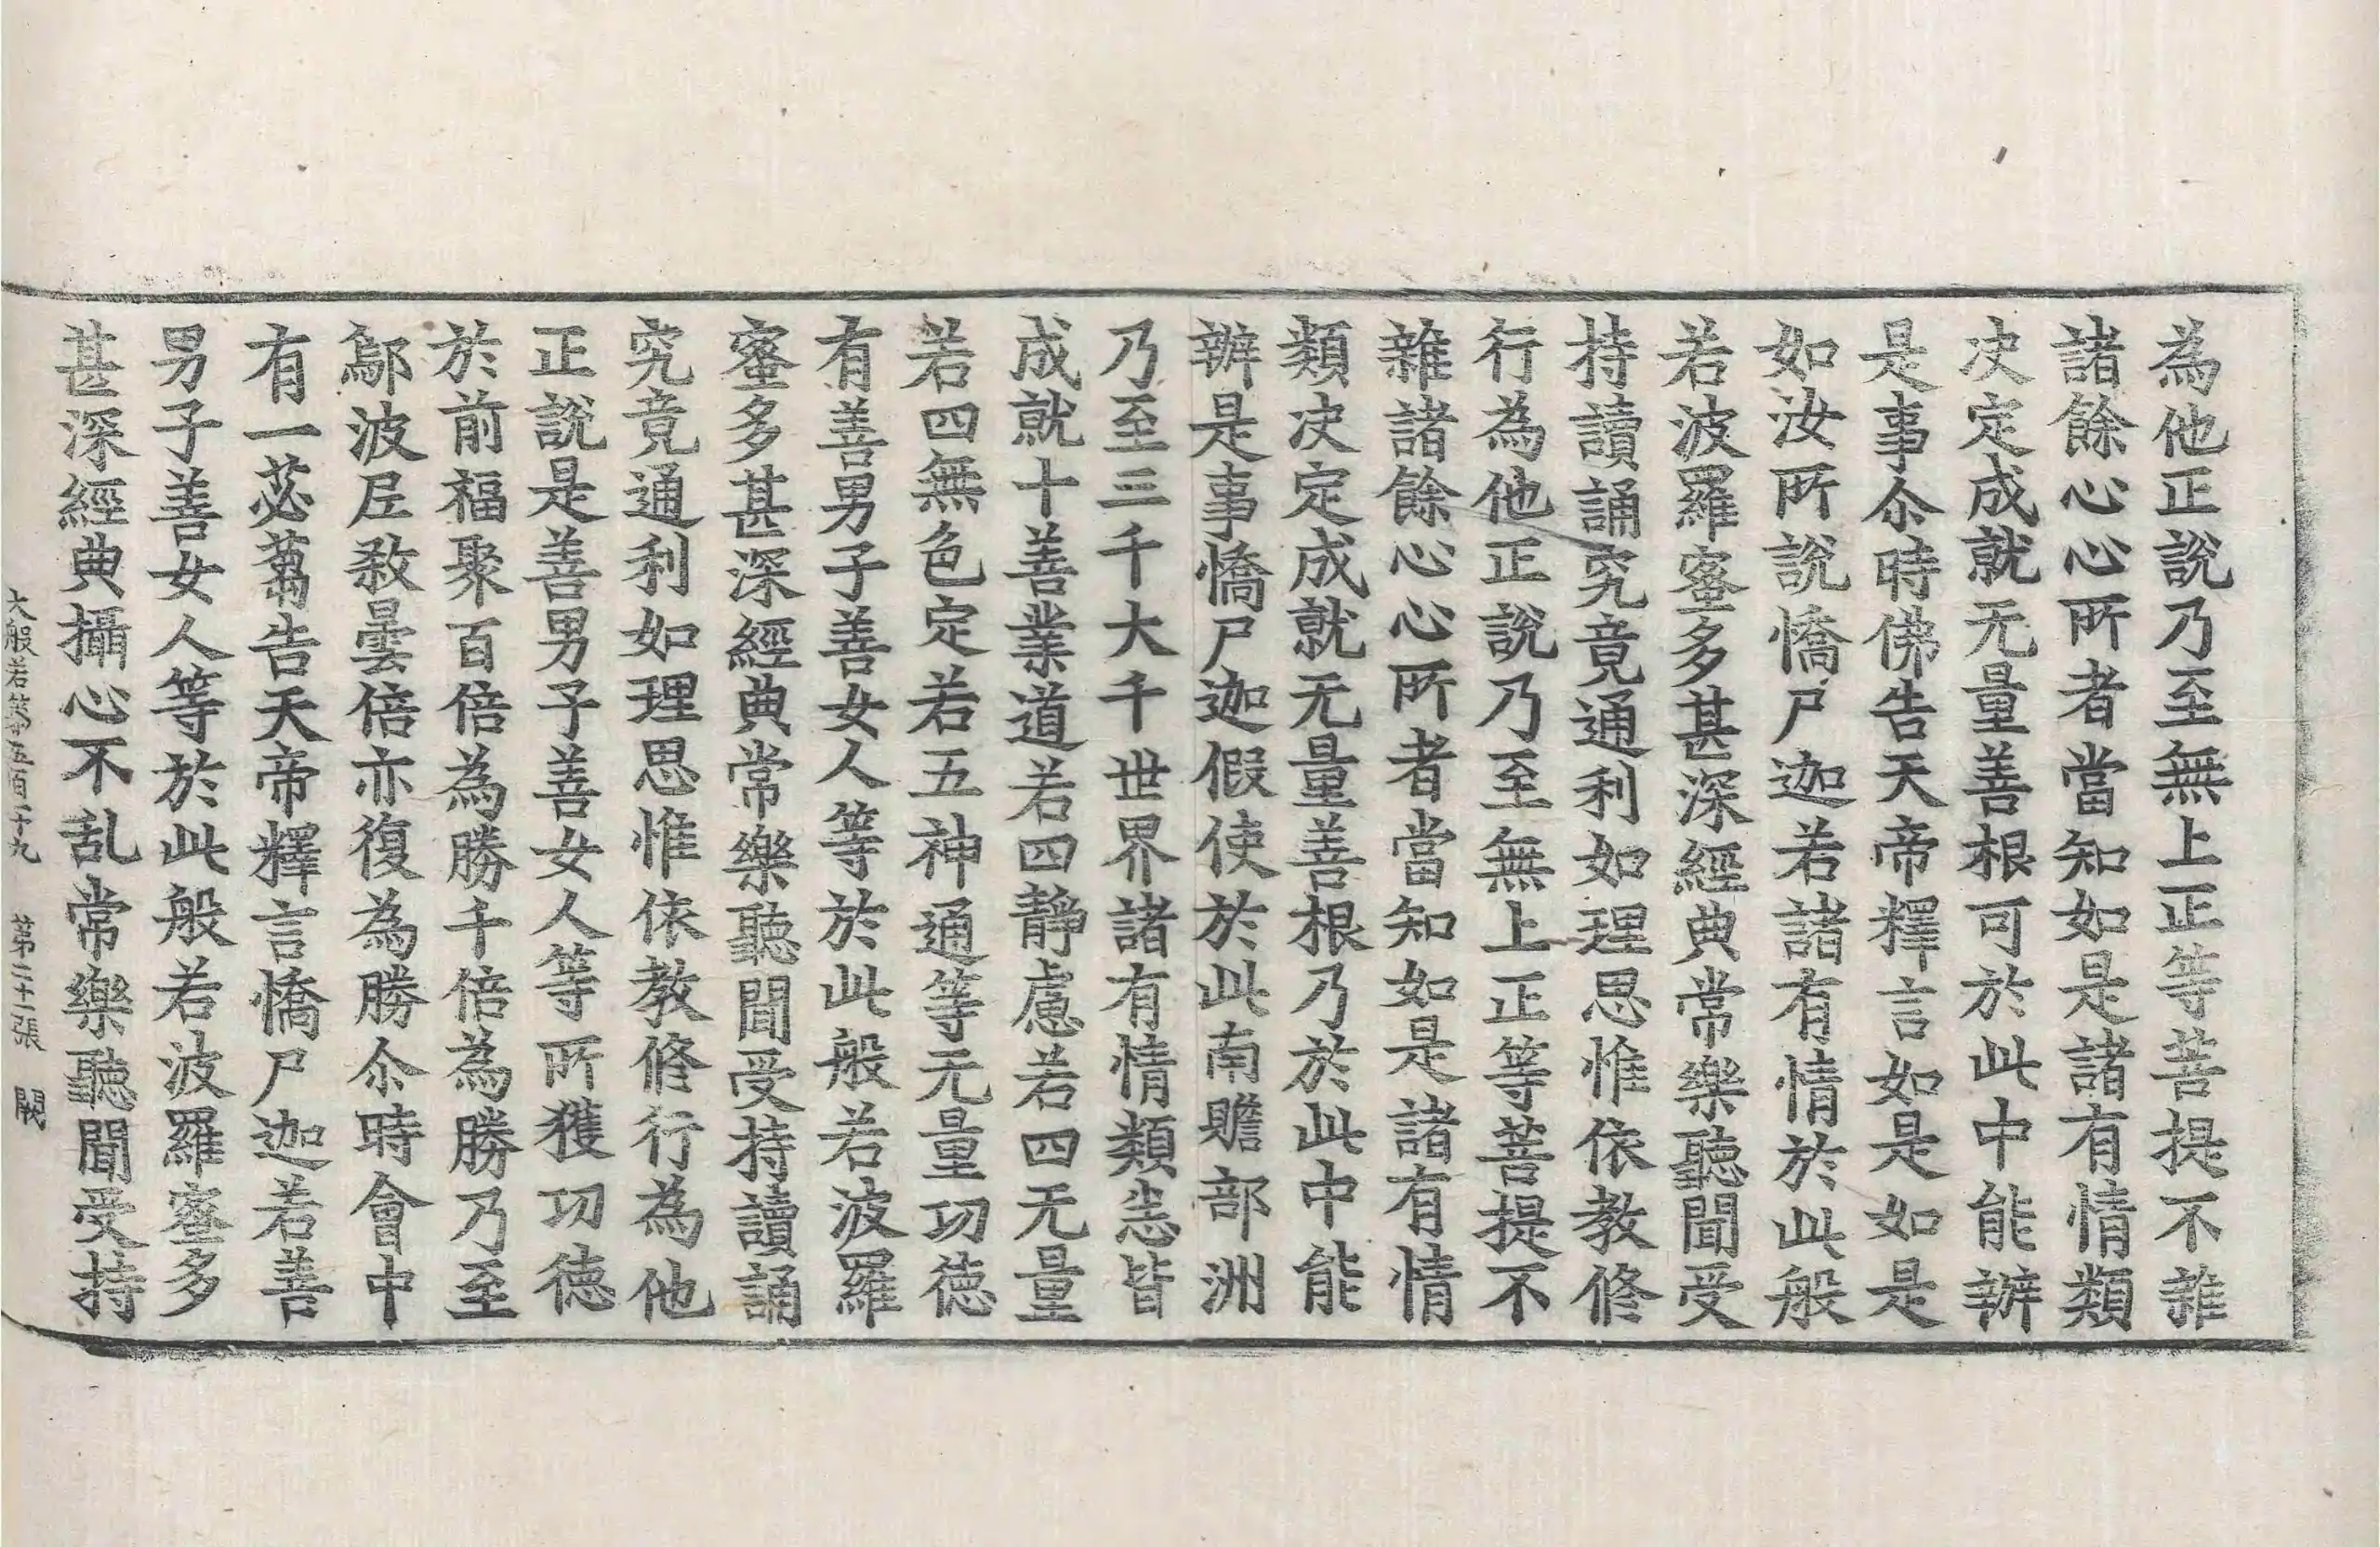 為他正說乃至無上正等菩提不雜
諸餘心心所者當知如是諸有情類
决定成就无量善根可於此中能辦
是事尒時佛告天帝釋言如是如是
如汝所說憍尸迦若諸有情於此般
若波羅蜜多甚深經典常樂聽聞受
持讀誦究竟通利如理思惟依教修
行為他正說乃至無上正等菩提不
雜諸餘心心所者當知如是諸有情
類决定成就无量善根乃於此中能
辦是事憍尸迦假使於此南贍部洲
乃至三千大千世界諸有情類恙皆
成就十善業道若四靜慮若四无量
若四無色定若五神通等无量功德
有善男子善女人等於此般若波羅
蜜多甚深經典常樂聽聞受持讀誦
究竟通利如理思惟依教修行為他
正說是善男子善女人等所獲功徳
於前福聚百倍為勝千倍為勝乃至
鄔波尼殺曇倍亦復為勝尒時會中
有一苾蒭告天帝釋言憍尸迦若善
男子善女人等於此般若波羅蜜多
甚深經典攝心不乱常樂聽聞受持
大般若第五百十九 第二十二張 闕